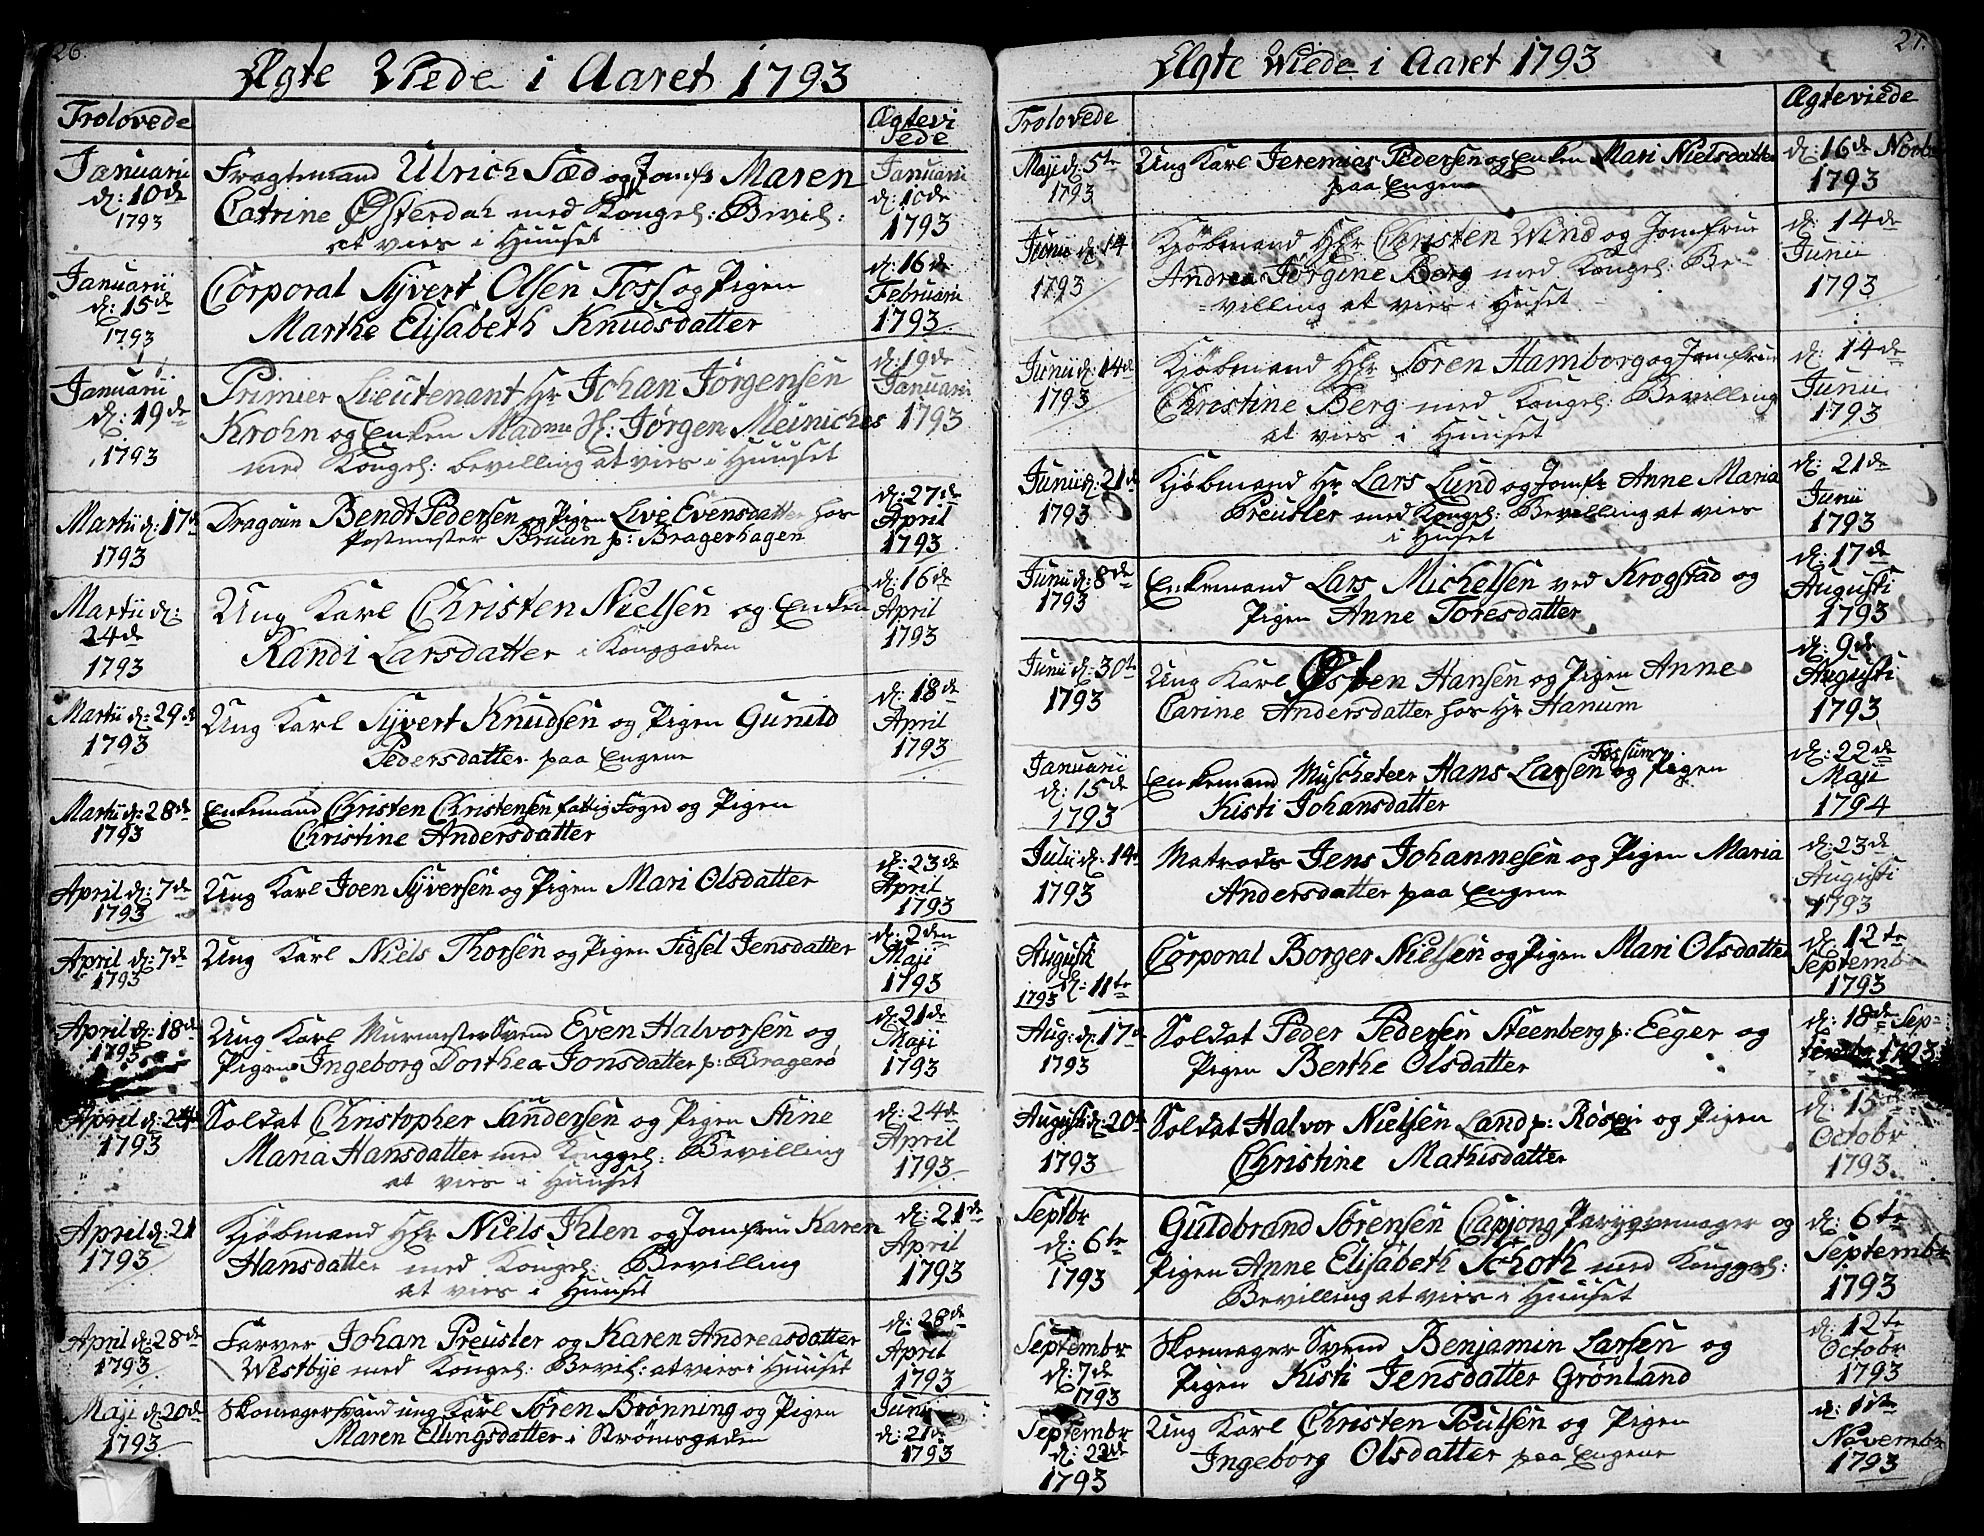 26.
Ægte Viede i Aaret 1793
Trolovede
Ægtevi
ede
Januarii
d: 10de
1793
Fragtemand Ulrich Sæd og Jomfr Maren
Catrine Østerdah med Kongel: Bevil:
at vies i Huuset
Januarii
d: 10de
1793
Januarii
d: 15de
1793
Corporal Syvert Olsen Foss og Pigen
Marthe Elisabeth Knudsdatter
d: 16de
Februarii
1793
Januarii
d: 19de
1793
Primier Lieutenant Hr Johan Jørgensen
Krohn og Enken Madme H: Jørgen Meiniches
med Kongel: bevilling at vies i Huuset
d: 19de
Januarii
1793
Martii d: 17de
1793
Dragoun Bendt Pedersen og Pigen Live Evensdatter hos
Postmester Bruun p: Bragerhagen
d: 27de
April
1793
Martii d:
24de
1793
Ung Karl Christen Nielsen og Enken
Randi Larsdatter i Konggaden
d: 16de
April
1793
Martii d: 29de
1793
Ung Karl Syvert Knudsen og Pigen Gunild
Pedersdatter paa Engene
d: 18de
April
1793
Martii d: 28de
1793
Enkemand Christen Christensen fattig Foged og Pigen
Christine Andersdatter
April d: 7de
1793
Ung Karl Joen Syversen og Pigen Mari Olsdatter
d: 23de
April
1793
April d: 7de
1793
Ung Karl Niels Thorsen og Pigen Sidsel Jensdatter
d: 2den
Maji
1793
April d: 18de
1793
Ung Karl Murmester Svend Even Halvorsen og
Pigen Ingeborg Dorthea Jonsdatter p: Bragerø
d: 21de
Maji
1793
April d: 24de
1793
Soldat Christopher Sandersen og Pigen Stine
Maria Hansdatter med Konggel: Bevilling
at vies i Huuset
d: 24de
April
1793
April d: 21
1793
Kjøbmand Hr Niels Ihlen og Jomfrue Karen
Hansdatter med Kongel: Bevilling
at vies i Huuset
d: 21de
April
1793
April d: 28de
1793
Farver Johan Preusler og Karen Andreasdatter
Westbye med Kongel: Bevil: at vies i Huuset
d: 28de
April
1793
Maji d: 20de
1793
Skomagersvend ung Karl Søren Brønning og Pigen
Maren Ellingsdatter i Strømsgaden
Junii
d: 21de
1793
27.
Ægte Viede i Aaret 1793
Trolovede
Ægteviede
Maji d: 5te
1793
Ung Karl Jeremias Pedersen og Enken Mari Nielsdatter
paa Engene
d: 16de Novbr
1793
Junii d: 14
1793
Kjøbmand Hr Christen Wind og Jomfrue
Andrea Jørgine Berg med Kongel: Be-
villing at vies i Huset
d: 14de
Junii
1793
Junii d: 14de
1793
Kjøbmand Hr Søren Hamborg og Jomfrue
Christine Berg med Kongel: Bevilling
at vies i Huuset
d: 14de
Junii
1793
Junii d: 21de
1793
Kjøbmand Hr Lars Lund og Jomfr Anne Maria
Preusler med Kongel: Bevilling at vies
i Huset
d: 21de
Junii
1793
Junii d: 8de
1793
Enkemand Lars Michelsen ved Krogstad og
Pigen Anne Toresdatter
d: 17de
Augusti
1793
Junii d: 30te
1793
Ung Karl Østen Hansen og Pigen Anne
Carine Andersdatter hos Hr Hanum
d: 9de
Augusti
1793
Januarii
d: 15de
1793
Enkemand Muscheteer Hans Larsen Fossum og Pigen
Kisti Johansdatter
d: 22de
Maji
1794
Julii d: 14
1793
Matrods Jens Johannesen og Pigen Maria
Andersdatter paa Engene
d: 23de
Augusti
1793
Augusti
d: 11te
1793
Corporal Borger Nielsen og Pigen Mari Olsdatter
d: 12te
Septembr
1793
Aug: d: 17de
1793
Soldat Peder Pedersen Steenberg p: Eeger og
Pigen Berthe Olsdatter
d: 18de Sep-
tembr 1793
Augusti d: 20de
1793
Soldat Halvor Nielsen Land p: og Pigen
Christine Mathisdatter
d: 15de
Octobr
1793
Septbr
d: 6te
1793
Guldbrand Sørensen Capjong og
Pigen Anne Elisabeth Schoth med Konggel:
Bevilling at vies i Huuset
d: 6te
Septembr
1793
Septembr
d: 7de
1793
Skomager Svend Benjamin Larsen og
Pigen Kisti Jensdatter Grønland
d: 12te
Octobr
1793
Septembr
d: 22de
1793
Ung Karl Christen Poulsen og Pigen
Ingeborg Olsdatter paa Engene
d: 1ste
Novembr
1793